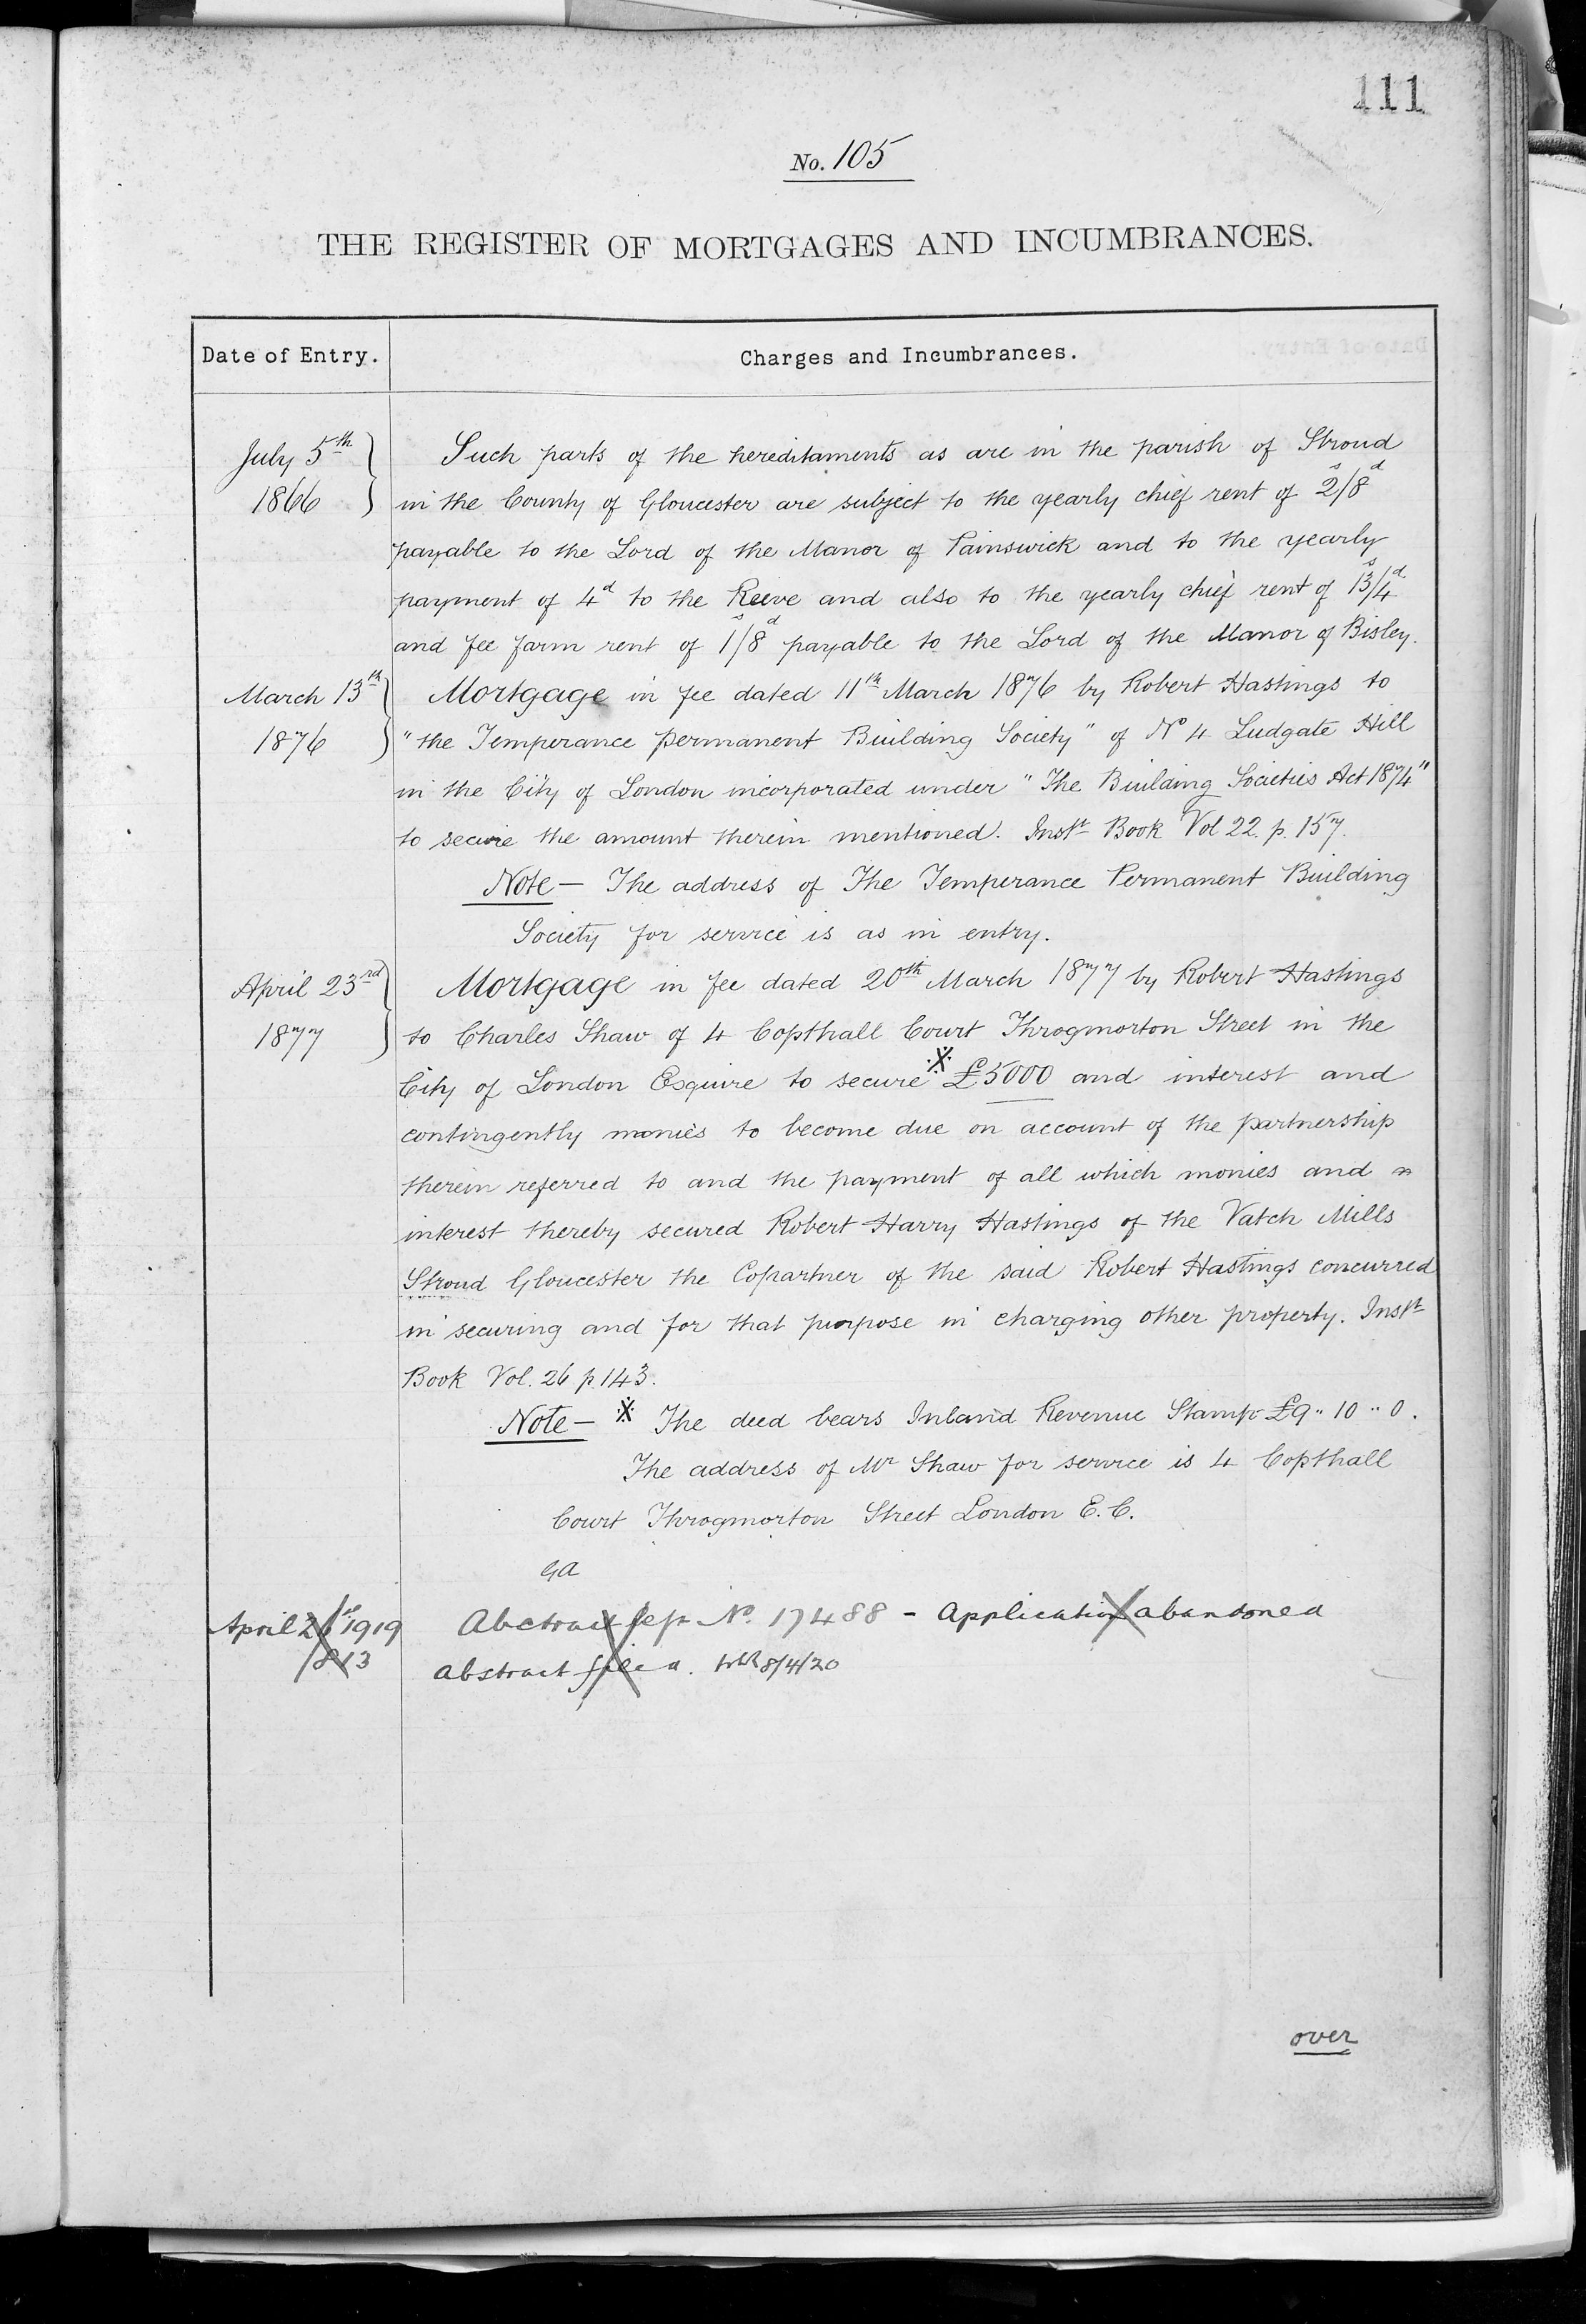 111
No. 105
THE REGISTER OF MORTGAGES AND INCUMBRANCES.
Date of Entry.
Charges and Incumbrances.
July 5th
1866
Such parts of the hereditaments as are in the parish of Stroud
in the County of Gloucester are subject to the yearly chief rent of 2s/8d
payable to the Lord of the Manor of Painswick and to the yearly
payment of 4d to the Reeve and also to the yearly chief rent of 13s/4d
and fee farm rent of 1s/8d payable to the Lord of the Manor of Bisley.
March 13th
1876
Mortgage in fee dated 11th March 1876 by Robert Hastings to
"the Temperance permanent Building Society" of No 4 Ludgate Hill
in the City of London incorporated under "The Building Societies Act 1874"
to secure the amount therein mentioned. Instt Book Vol 22. p. 157.
Note — The address of The Temperance Permanent Building
Society for service is as in entry.
April 23rd
1877
Mortgage in fee dated 20th March 1877 by Robert Hastings
to Charles Shaw of 4 Copthall Court Throgmorton Street in the
City of London Esquire to secure ※ £5000 and interest and
contingently monies to become due on account of the partnership
therein referred to and the payment of all which monies and
interest thereby secured Robert Harry Hastings of the Vatch Mills
Stroud Gloucester the Copartner of the said Robert Hastings concurred
in securing and for that purpose in charging other property. Instt
Book Vol. 26 p. 143.
Note — ※ The deed bears Inland Revenue Stamp £9 " 10 " 0.
The address of Mr Shaw for service is 4 Copthall
Court Throgmorton Street London E.C.
GA
April 1919
Abstract No. 17488 - Application abandoned
abstract filed. 8/4/20
over